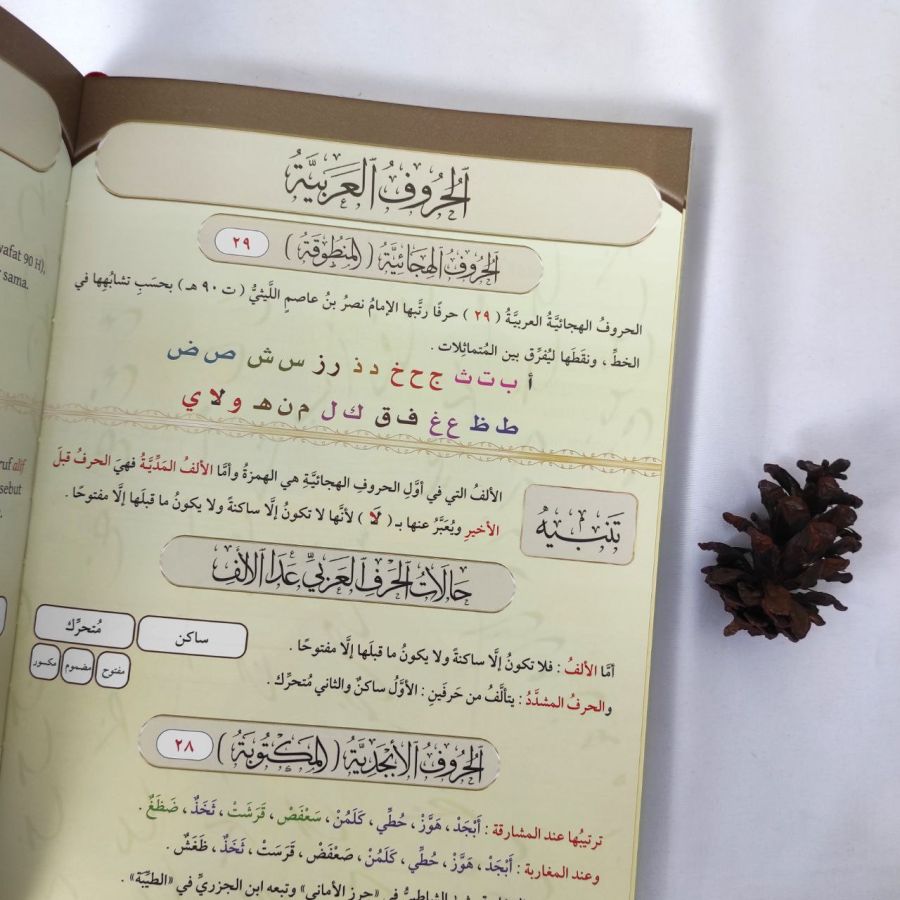 wafat 90 H),
sama.
ruf alif
sebut
الحُرُوفُ ٱلعَرَبيَّةُ
الحُرُوفُ الهِجَائيَّةُ (المَنْطُوقَةُ) ٢٩
الحروفُ الهجائيَّةُ العربيَّةُ ( ٢٩ ) حرفًا رتَّبها الإمامُ نصرُ بنُ عاصمٍ اللَّيثيُّ ( ت ٩٠ هـ ) بحسَبِ تشابُهِها في
الخطِّ ، ونقَطَها ليُفرِّق بين المُتماثِلات .
أ ب ت ث ج ح خ د ذ ر ز س ش ص ض
ط ظ ع غ ف ق ك ل م ن هـ و لا ي
تَنبيهُ
الألفُ التي في أوَّلِ الحروفِ الهجائيَّةِ هي الهمزةُ وأمَّا الألفُ المَدِّيَّةُ فهيَ الحرفُ قبلَ
الأخيرِ ويُعَبَّرُ عنها بـ ( لَا ) لأنَّها لا تكونُ إلَّا ساكنةً ولا يكونُ ما قبلَها إلَّا مفتوحًا .
حَالَاتُ الحَرفِ العَرَبيِّ عَدَا الألف
ساكن
مُتحرِّك
مفتوح
مضموم
مكسور
أمَّا الألفُ : فلا تكونُ إلَّا ساكنةً ولا يكونُ ما قبلَها إلَّا مفتوحًا .
والحرفُ المشدَّدُ : يتألَّفُ من حَرفَينِ : الأوَّلُ ساكنٌ والثاني مُتحرِّك .
الحُرُوفُ الأبْجَدِيَّةُ (المَكْتُوبَةُ) ٢٨
ترتيبُها عند المشارقة : أَبْجَدْ ، هَوَّزْ ، حُطِّي ، كَلَمُنْ ، سَعْفَصْ ، قَرَشَتْ ، ثَخَذٌ ، ضَظَغٌ .
وعند المغاربة : أَبْجَدْ ، هَوَّزْ ، حُطِّي ، كَلَمُنْ ، صَعْفَضْ ، قَرَسَتْ ، ثَخَذٌ ، ظَغَشٌ .
الشاطبيُّ في «حرز الأماني» وتبعه ابن الجزريِّ في «الطيِّبة» .